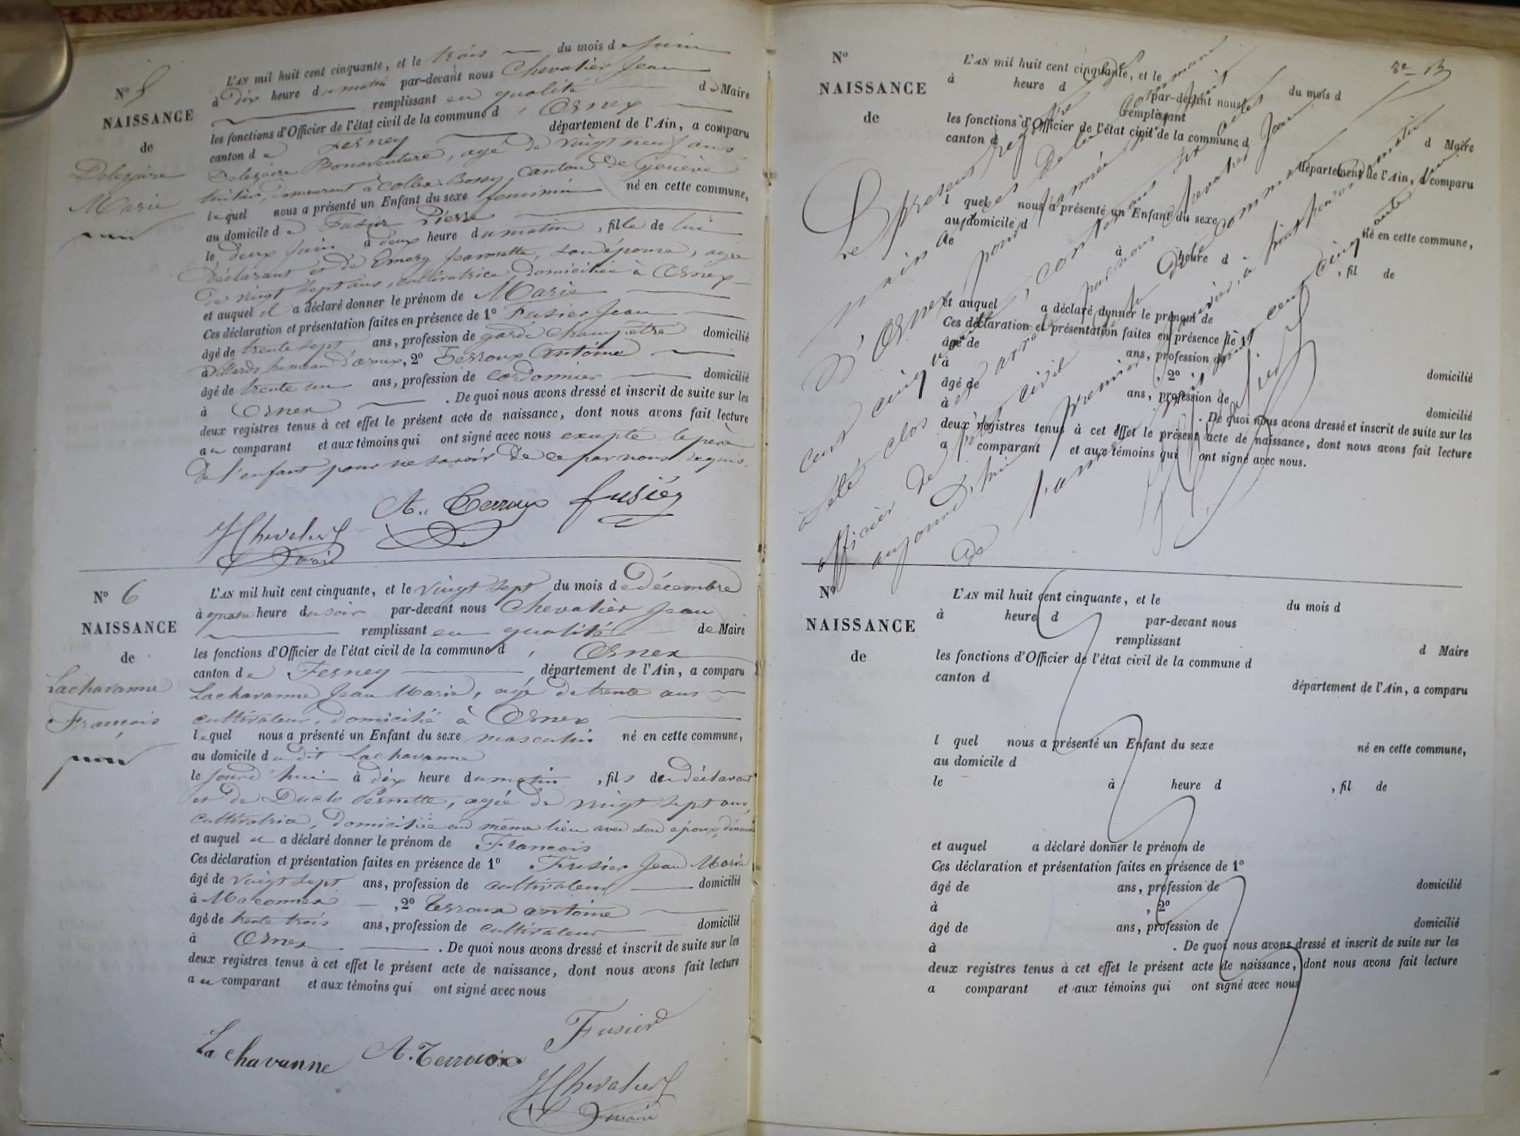 N° 5
NAISSANCE
de
Delezoire
Marie
L'AN mil huit cent cinquante, et le trois du mois de juin
à dix heure du matin par-devant nous Chevalier Jean
remplissant en qualité de Maire
les fonctions d'Officier de l'état civil de la commune d'Ornex
canton de Ferney département de l'Ain, a comparu
Bonaventure, agé de vingt neuf ans
demeurant à Bossy, canton de Genève
lequel nous a présenté un Enfant du sexe féminin né en cette commune,
au domicile de Fusier Pierre
le deux juin à deux heure du matin, fille de lui
déclarant et de Emery Jeannette, son épouse, agée
de vingt sept ans, cultivatrice, domiciliée à Ornex
et auquel il a déclaré donner le prénom de Marie
Ces déclaration et présentation faites en présence de 1° Fusier Jean
âgé de trente sept ans, profession de garde champêtre domicilié
à hameau d'Ornex, 2° Terroux Antoine
âgé de trente un ans, profession de cordonnier domicilié
à Ornex . De quoi nous avons dressé et inscrit de suite sur les
deux registres tenus à cet effet le présent acte de naissance, dont nous avons fait lecture
au comparant et aux témoins qui ont signé avec nous excepté le père
de l'enfant pour ne savoir de ce par nous requis.
A. Terroux fusier
J Chevalier
maire
N° 6
NAISSANCE
de
Lachavanne
François
L'AN mil huit cent cinquante, et le vingt sept du mois de Décembre
à quatre heure du soir par-devant nous Chevalier Jean
remplissant en qualité de Maire
les fonctions d'Officier de l'état civil de la commune d'Ornex
canton de Ferney département de l'Ain, a comparu
Lachavanne Jean Marie, agé de trente ans
cultivateur, domicilié à Ornex
lequel nous a présenté un Enfant du sexe masculin né en cette commune,
au domicile du dit Lachavanne
le jourd'hui à dix heure du matin, fils du déclarant
et de Duclo Pernette, agée de vingt sept ans,
cultivatrice, domiciliée au même lieu avec son époux,
et auquel il a déclaré donner le prénom de François
Ces déclaration et présentation faites en présence de 1° Fusier Jean Marie
âgé de vingt sept ans, profession de cultivateur domicilié
à Maconnex , 2° Terroux antoine
âgé de trente trois ans, profession de cultivateur domicilié
à Ornex . De quoi nous avons dressé et inscrit de suite sur les
deux registres tenus à cet effet le présent acte de naissance, dont nous avons fait lecture
au comparant et aux témoins qui ont signé avec nous
Fusier
La chavanne A. Terroux
J Chevalier
maire
N°
NAISSANCE
de
L'AN mil huit cent cinquante, et le du mois d
à heure d par-devant nous
remplissant d Maire
les fonctions d'Officier de l'état civil de la commune d
canton d département de l'Ain, a comparu
l quel nous a présenté un Enfant du sexe né en cette commune,
au domicile d
le à heure d , fil de
et auquel a déclaré donner le prénom de
Ces déclaration et présentation faites en présence de 1°
âgé de ans, profession de domicilié
à , 2°
âgé de ans, profession de domicilié
à . De quoi nous avons dressé et inscrit de suite sur les
deux registres tenus à cet effet le présent acte de naissance, dont nous avons fait lecture
a comparant et aux témoins qui ont signé avec nous.
Le présent registre
d'Ornex pour
cent cinquante
été clos et arrêté par nous Chevalier Jean
officier de l'état civil de la commune
aujourd'hui premier janvier, à
N°
NAISSANCE
de
L'AN mil huit cent cinquante, et le du mois d
à heure d par-devant nous
remplissant d Maire
les fonctions d'Officier de l'état civil de la commune d
canton d département de l'Ain, a comparu
l quel nous a présenté un Enfant du sexe né en cette commune,
au domicile d
le à heure d , fil de
et auquel a déclaré donner le prénom de
Ces déclaration et présentation faites en présence de 1°
âgé de ans, profession de domicilié
à , 2°
âgé de ans, profession de domicilié
à . De quoi nous avons dressé et inscrit de suite sur les
deux registres tenus à cet effet le présent acte de naissance, dont nous avons fait lecture
a comparant et aux témoins qui ont signé avec nous